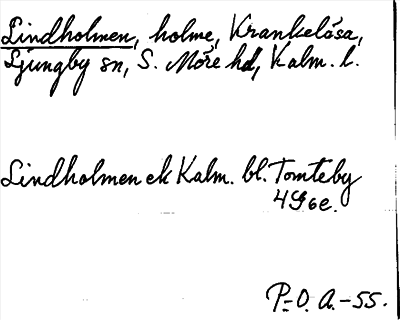 Lindholmen, holme, Krankelösa,
Ljungby sn, S. Möre hd, Kalm. l.
Lindholmen ek Kalm. bl. Tomteby
4G6e.
P.-O. A.-55.